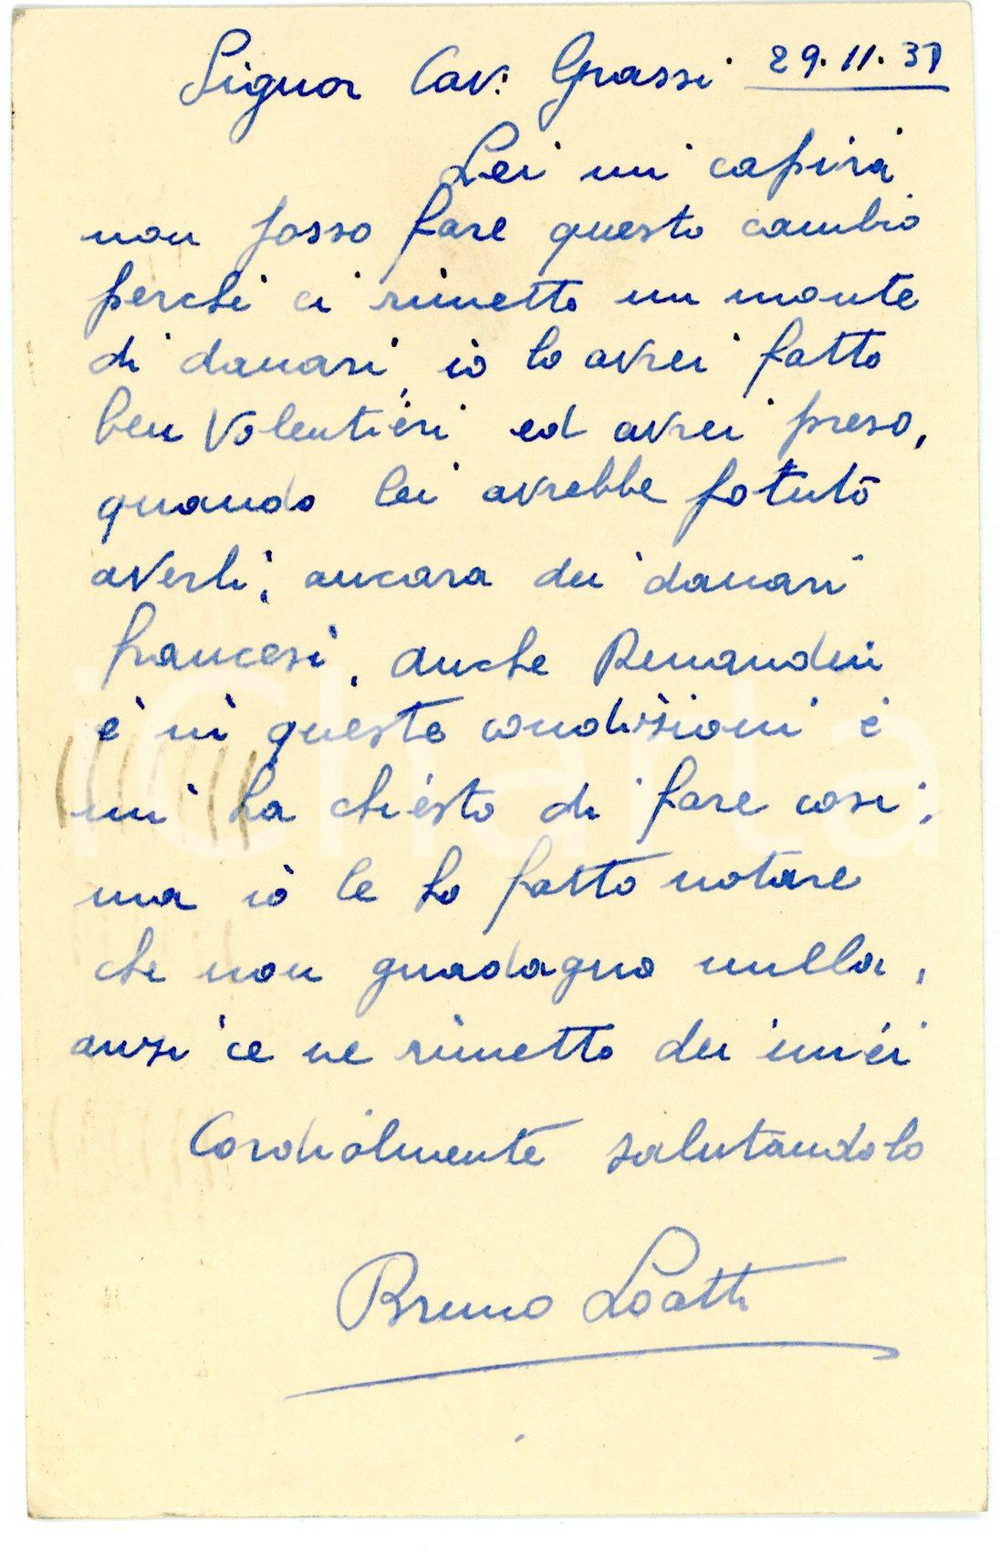 Signor Cav. Grassi 29.11.37
Lei mi capirà
non posso fare questo cambio
perchè ci rimetto un monte
di danari, io lo avrei fatto
ben volentieri ed avrei preso,
quando lei avrebbe potuto
averli, ancora dei danari
francesi, anche Renandin
è in queste condizioni e
mi ha chiesto di fare così,
ma io le ho fatto notare
che non guadagno nulla,
anzi ce ne rimetto dei miei
Cordialmente salutandolo
Bruno Loatti
iCharta